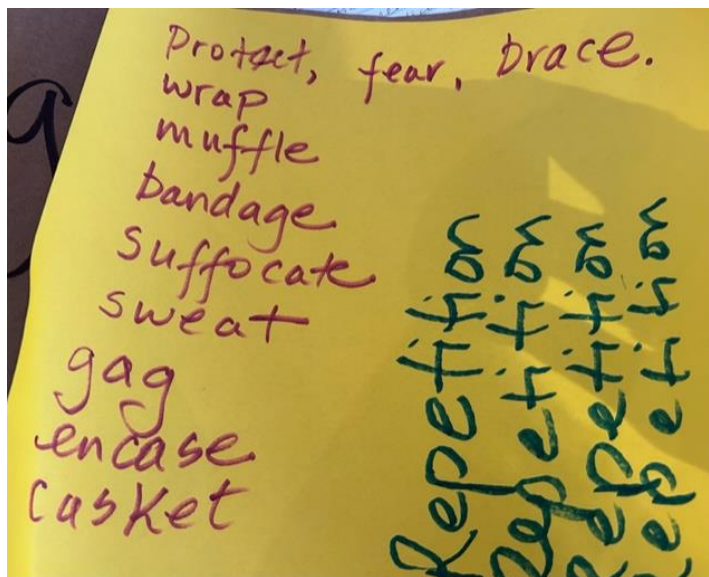 Protect, fear, brace.
wrap
muffle
bandage
suffocate
sweat
gag
encase
casket
Repetition
Repetition
Repetition
Repetition